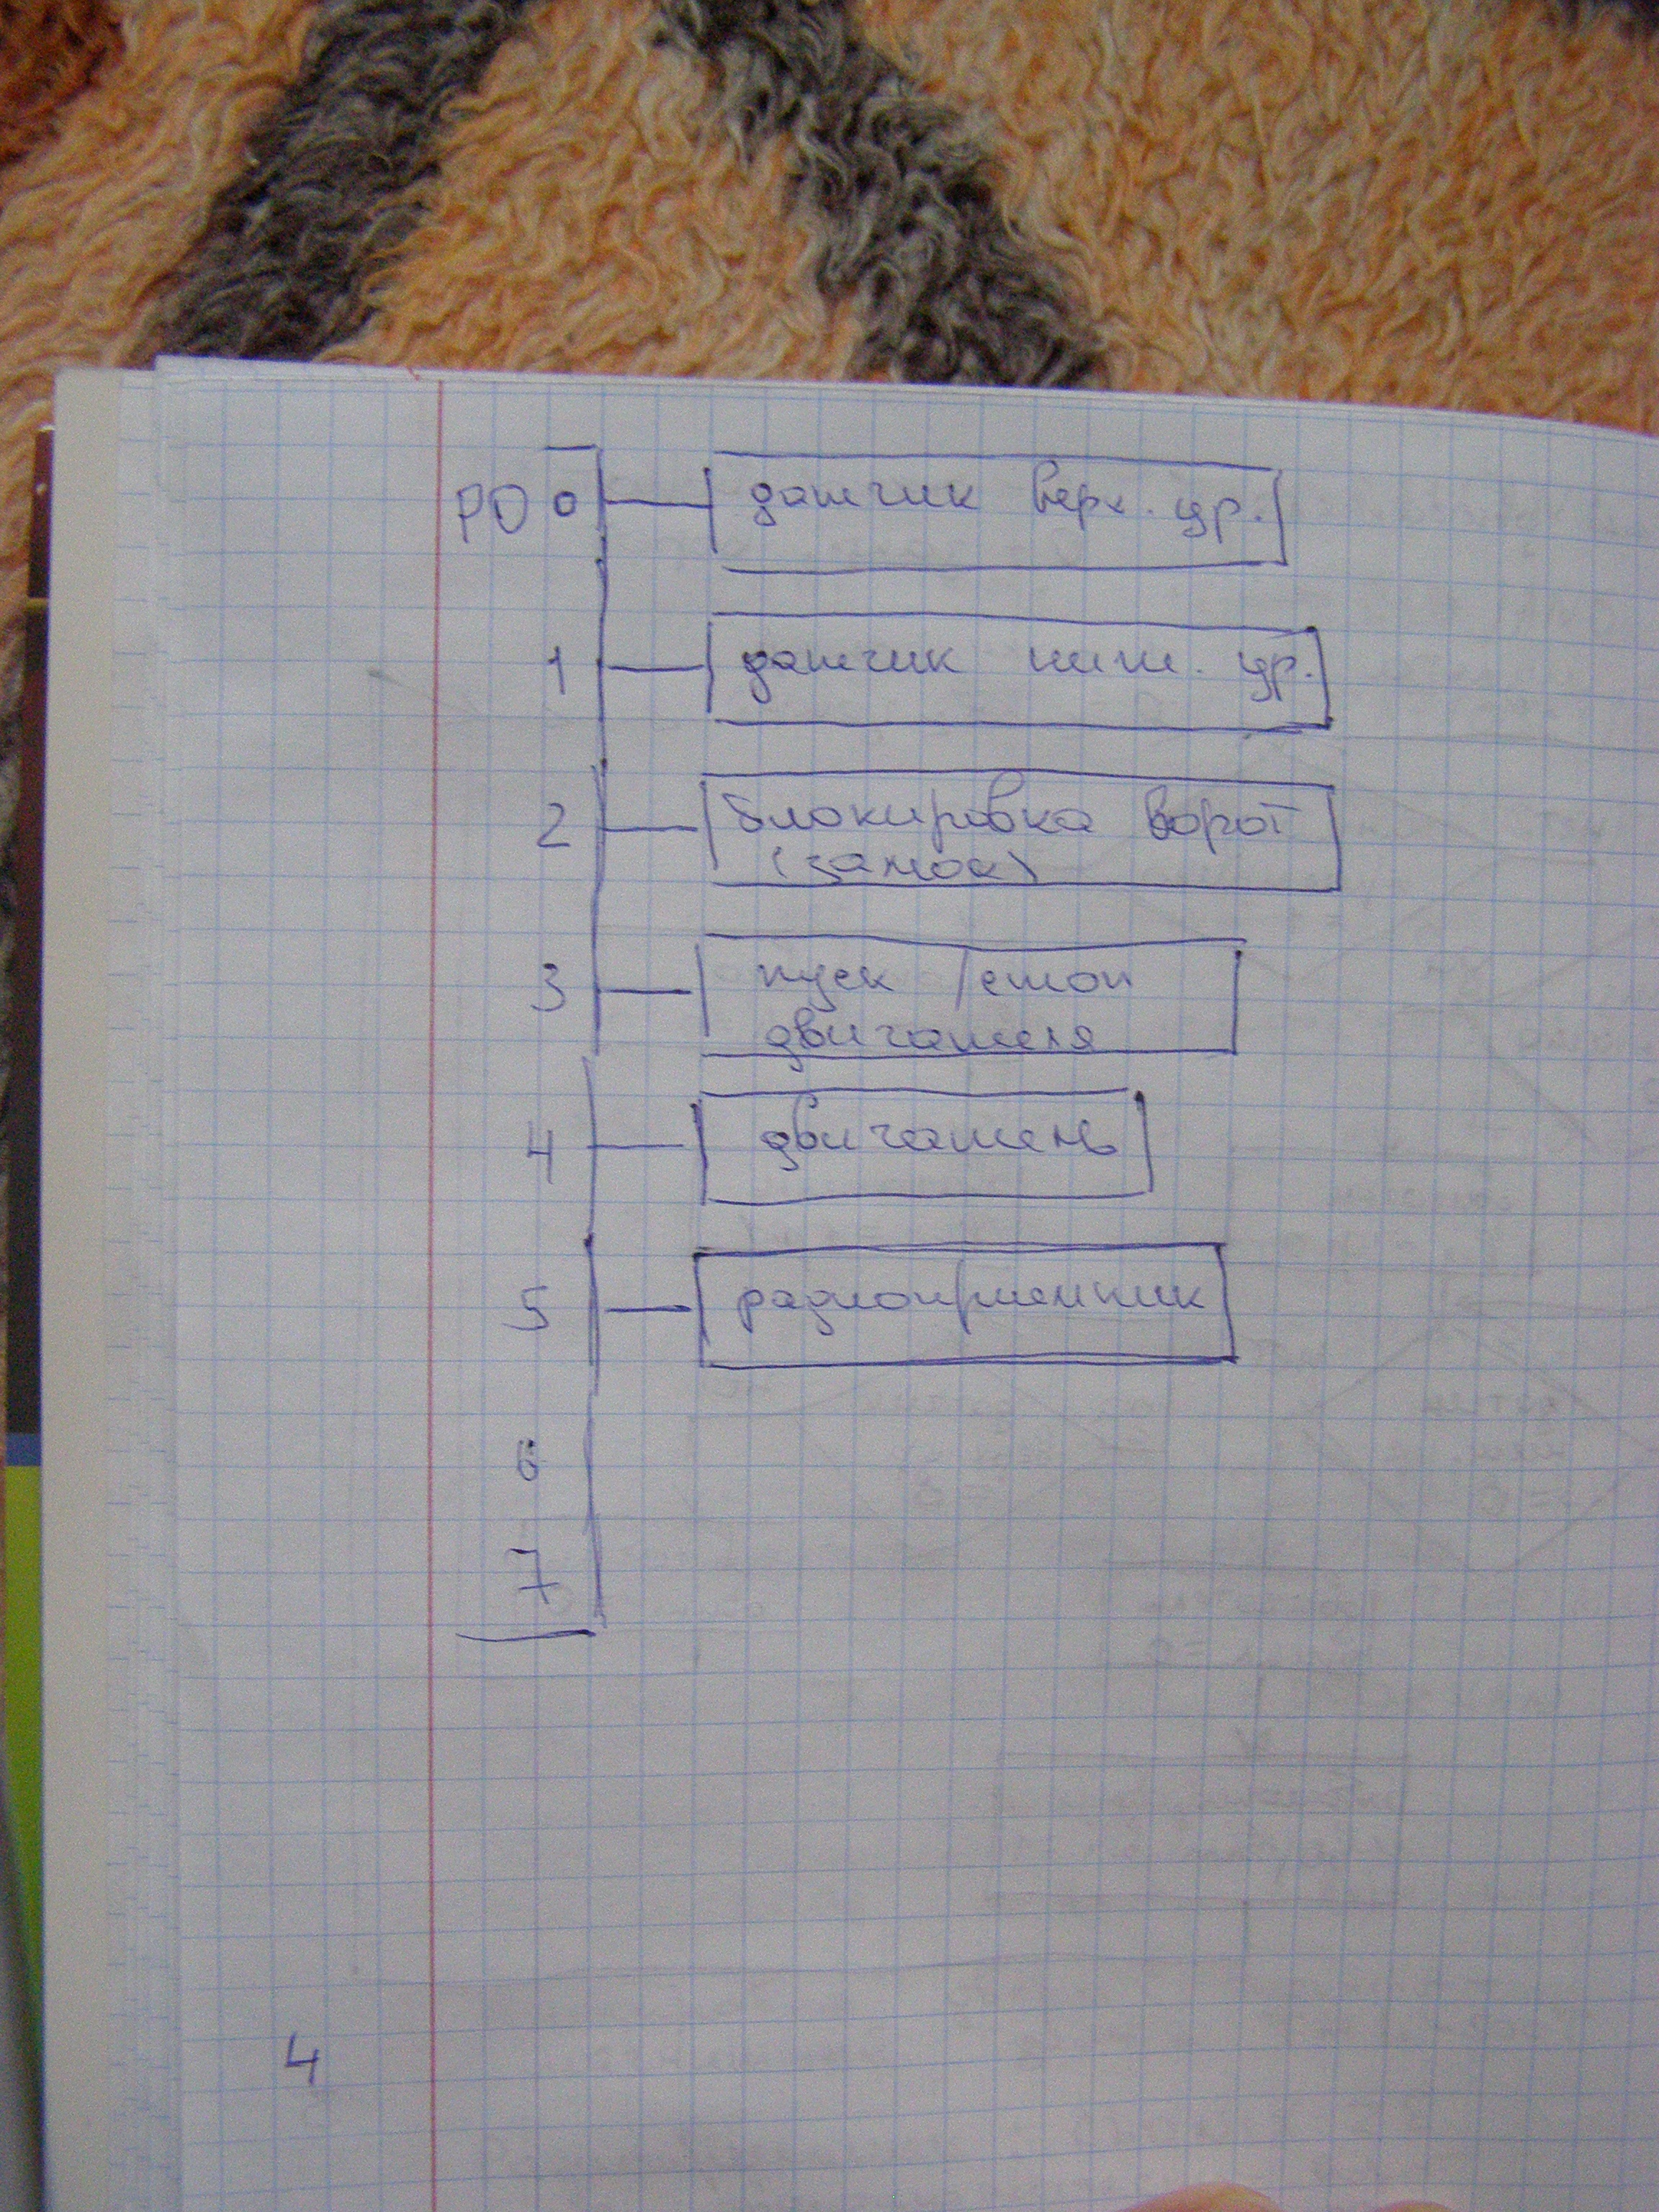 PD 0 датчик верх. ур.
1 датчик ниж. ур.
2 блокировка ворот
(замок)
3 пуск/стоп
двигателя
4 двигатель
5 радиоприемник
6
7
4